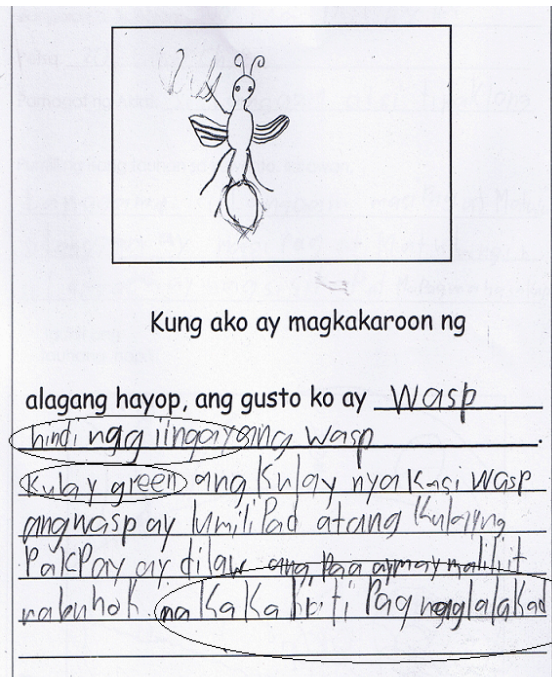 Kung ako ay magkakaroon ng
alagang hayop, ang gusto ko ay Wasp
hindi nag iingay ang wasp.
Kulay green ang kulay nya kasi wasp
ang wasp ay lumilipad at ang kulay ng
Pakpay ay dilaw ang Paa ay may maliliit
na buhok. na kakakapiti Pag naglalakad